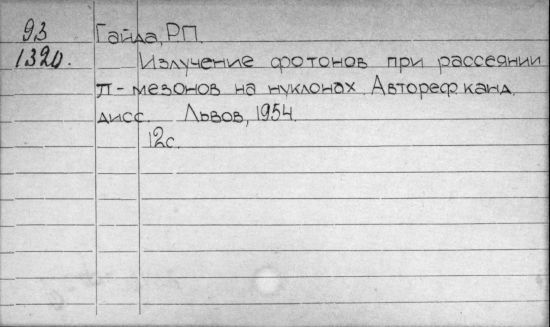 93
1320.
Гайда, Р.П.
Излучение фотонов при рассеянии
π - мезонов на нуклонах. Автореф. канд.
дисс. Львов, 1954.
12с.